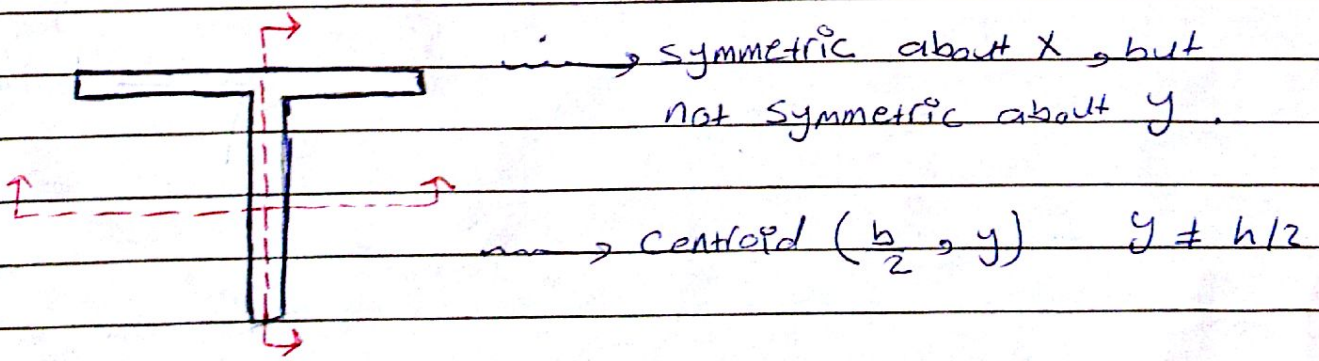 symmetric about X, but
not symmetric about y.
Centroid (b/2, y) y ≠ h/2